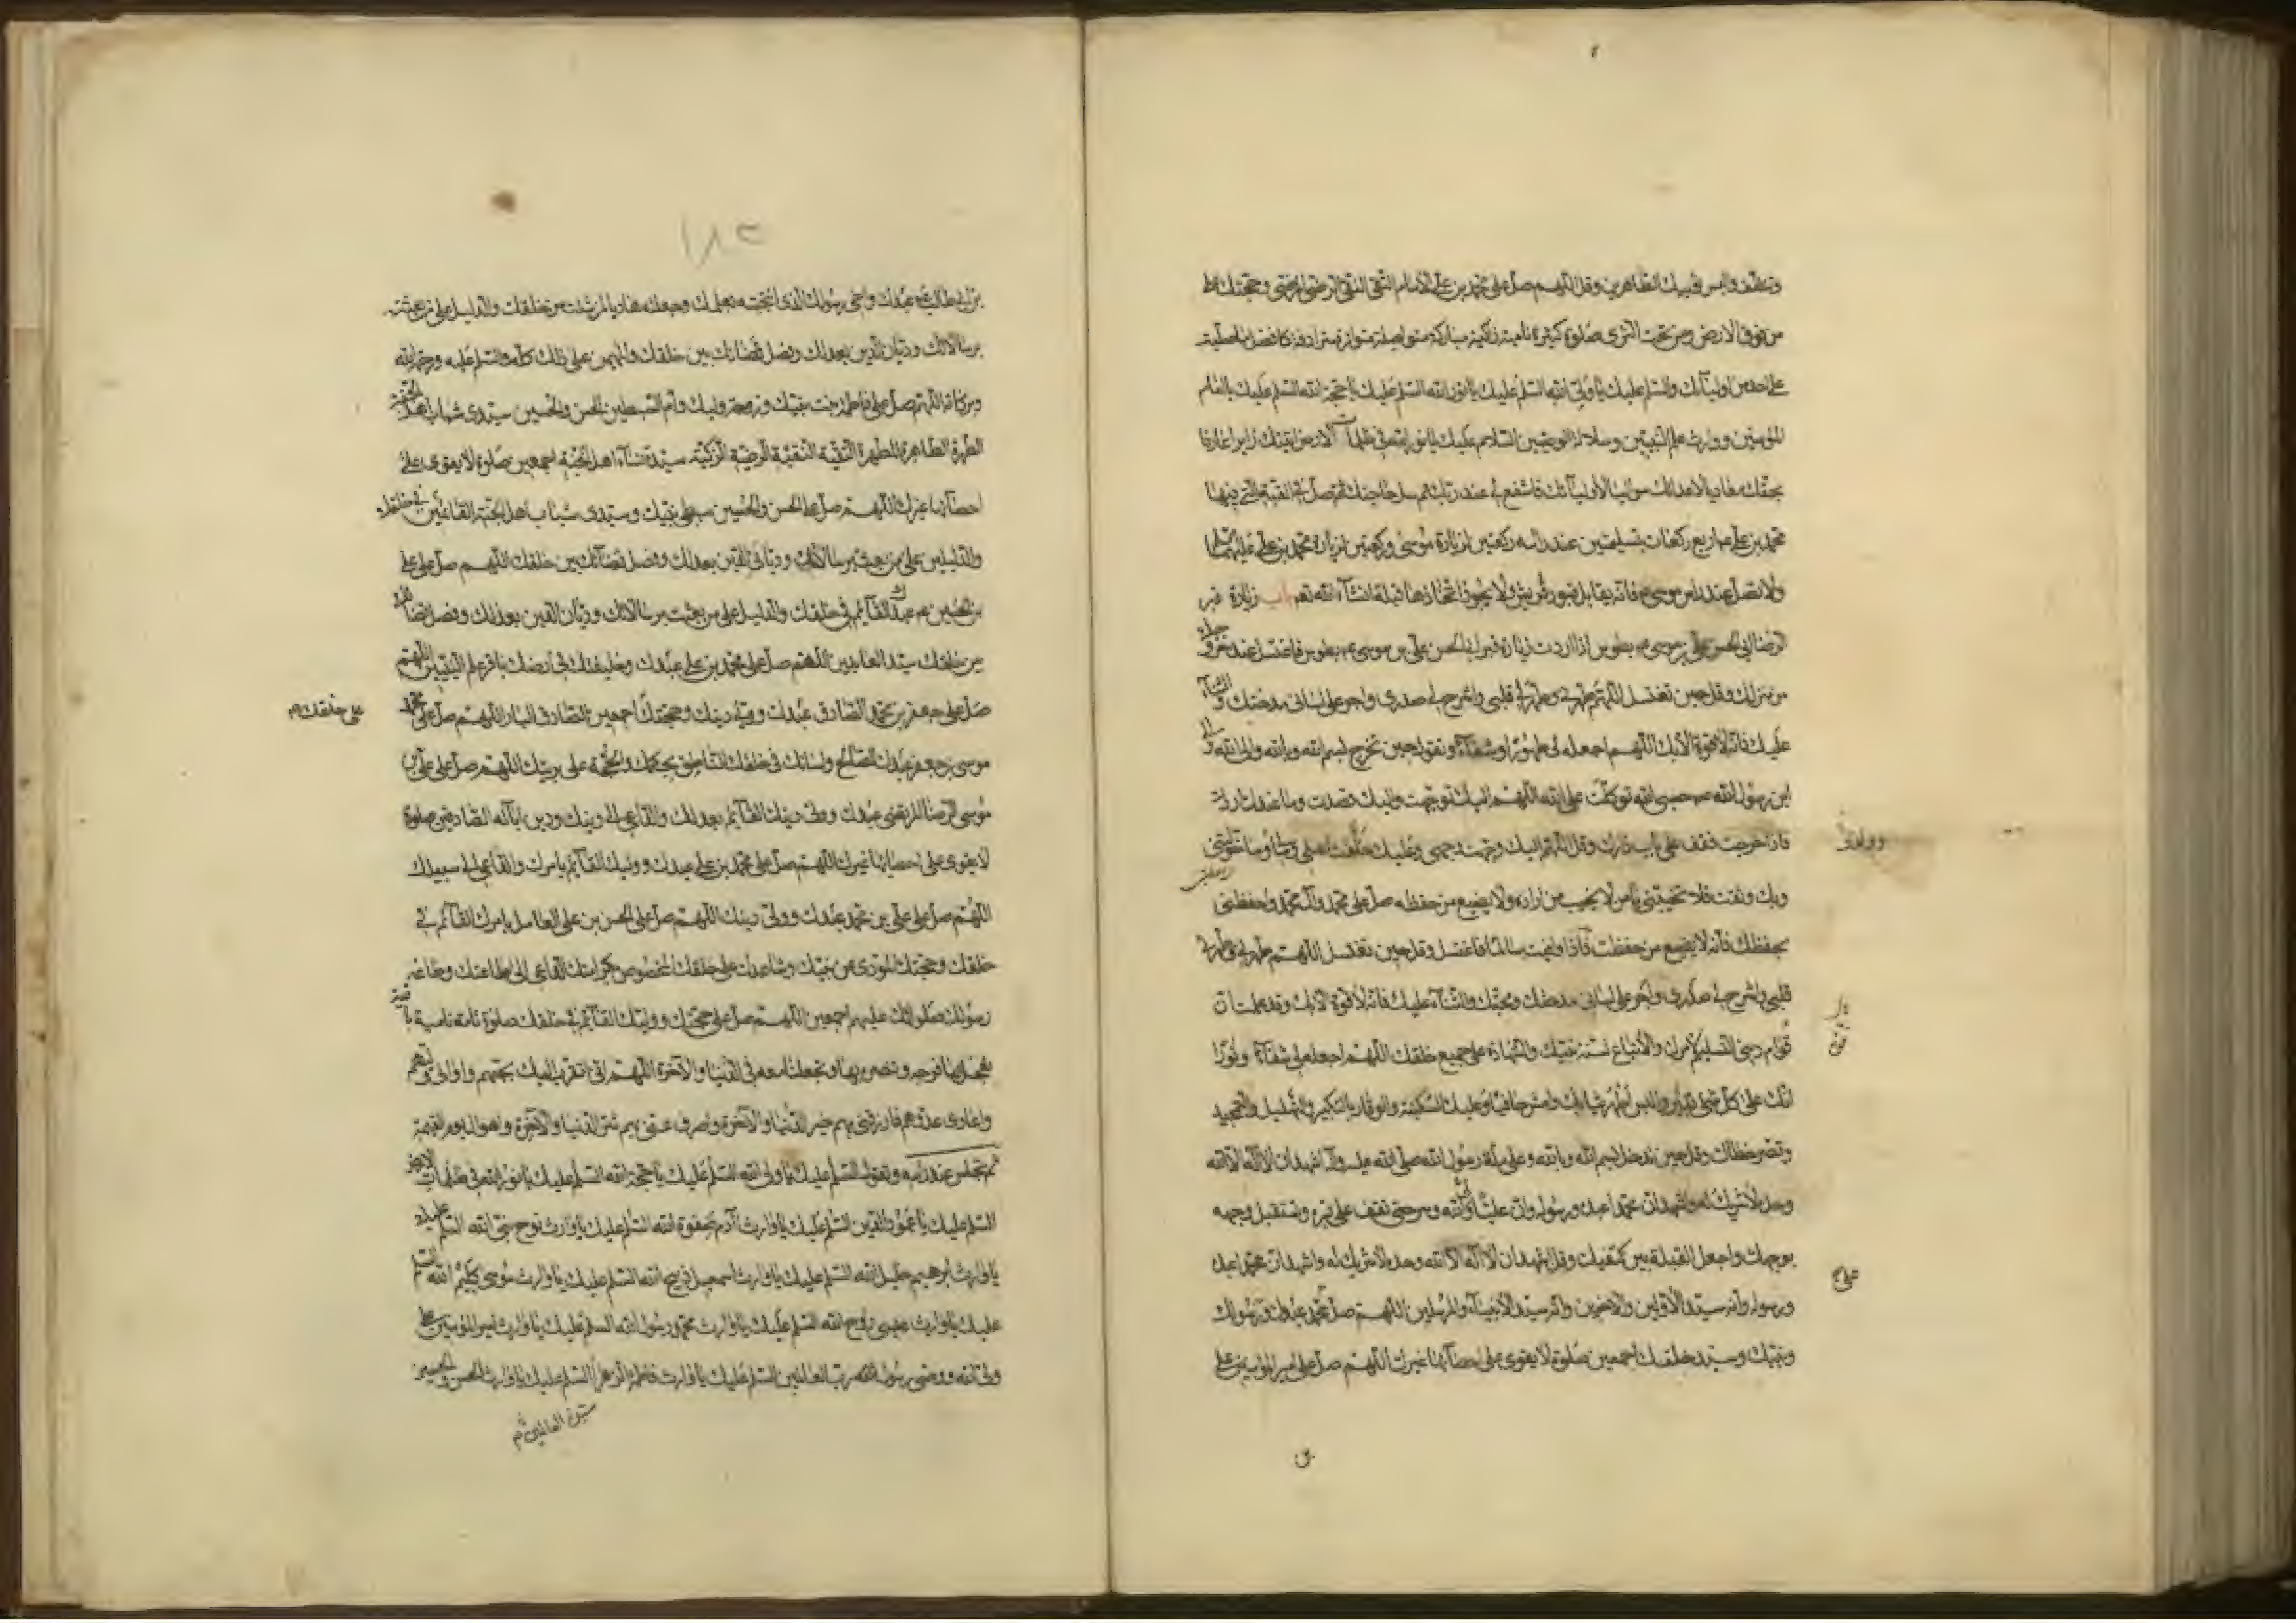 وتنظف والبس ثوبيك الطاهرين وقل اللهم صل على محمد بن علي الامام التقي النقي الرضي المرضي وحجتك على
من فوق الارض ومن تحت الثرى صلوة كثيرة نامية زاكية مباركة متواصلة متواترة مترادفة كافضل ما صليت
على احد من اوليائك والسلم عليك يا ولي الله السلم عليك يا نور الله السلم عليك يا حجة الله السلم عليك يا امام
المؤمنين ووارث علم النبيين وسلالة الوصيين السلام عليك يا نور الله في ظلمات الارض اتيتك زايرا عارفا
بحقك معاديا لاعدائك مواليا لاوليائك فاشفع لي عند ربك ثم سل حاجتك ثم صل في القبة التي فيها
محمد بن علي ع اربع ركعات بتسليمتين عند راسه ركعتين لزيارة موسى وركعتين لزيارة محمد بن علي عليهما السلم
ولا تصل عند راس موسى ع فانه يقابل قبور قريش ولا يجوز اتخاذها قبلة انشاء الله تعم باب زيارة قبر
الرضا ابي الحسن علي بن موسى ع بطوس اذا اردت زيارة قبر ابي الحسن علي بن موسى ع بطوس فاغتسل عند خروجك
من منزلك وقل حين تغتسل اللهم طهرني وطهر لي قلبي واشرح لي صدري واجر على لساني مدحتك والثناء
عليك فانه لا قوة الا بك اللهم اجعله لي طهورا وشفاء وتقول حين تخرج بسم الله وبالله والى الله والى
ابن رسول الله ص حسبي الله توكلت على الله اللهم اليك توجهت واليك قصدت وما عندك اردت
فاذا خرجت فقف على باب دارك وقل اللهم اليك وجهت وجهي وعليك خلفت اهلي ومالي وما خولتني
وبك وثقت فلا تخيبني يا من لا يخيب من اراده ولا يضيع من حفظه صل على محمد وآل محمد واحفظني
بحفظك فانه لا يضيع من حفظت فاذا وافيت سالما فاغتسل وقل حين تغتسل اللهم طهرني وطهر لي
قلبي واشرح لي صدري واجر على لساني مدحتك ومحبتك والثناء عليك فانه لا قوة الا بك وقد علمت ان
قوام ديني التسليم لامرك والاتباع لسنة نبيك والشهادة على جميع خلقك اللهم اجعله لي شفاء ونورا
انك على كل شيء قدير والبس اطهر ثيابك وامش حافيا وعليك السكينة والوقار بالتكبير والتهليل والتمجيد
وقصر خطاك وقل حين تدخل بسم الله وبالله وعلى ملة رسول الله صلى الله عليه وآله اشهد ان لا اله الا الله
وحده لا شريك له واشهد ان محمدا عبده ورسوله وان عليا ولي الله وسر حتى تقف على قبره وتستقبل وجهه
بوجهك واجعل القبلة بين كتفيك وقل اشهد ان لا اله الا الله وحده لا شريك له واشهد ان محمدا عبده
ورسوله وانه سيد الاولين والاخرين وانه سيد الانبياء والمرسلين اللهم صل محمد عبدك ورسولك
ونبيك وسيد خلقك اجمعين صلوة لا يقوى على احصائها غيرك اللهم صل على امير المؤمنين علي
على
بن
١٨٢
بن ابي طالب ع عبدك واخي رسولك الذي انتجبته بعلمك وجعلته هاديا لمن شئت من خلقك والدليل على من بعثته
برسالاتك وديان الدين بعدلك وفصل قضائك بين خلقك والمهيمن على ذلك كله والسلم عليه ورحمة الله
وبركاته اللهم صل على فاطمة بنت نبيك وزوجة وليك وام السبطين الحسن والحسين سيدي شباب اهل الجنة
الطهرة الطاهرة المطهرة التقية النقية الرضية الزكية سيدة نساء اهل الجنة اجمعين صلوة لا يقوى على
احصائها غيرك اللهم صل على الحسن والحسين سبطي نبيك وسيدي شباب اهل الجنة القائمين في خلقك
والدليلين على من بعثت برسالاتك ودياني الدين بعدلك وفصل قضائك بين خلقك اللهم صل على علي
بن الحسين ع عبدك القائم في خلقك والدليل على من بعثت برسالاتك وديان الدين بعدلك وفصل قضائك
بين خلقك سيد العابدين اللهم صل على محمد بن علي عبدك وخليفتك في ارضك باقر علم النبيين اللهم
صل على جعفر بن محمد الصادق عبدك وولي دينك وحجتك اجمعين الصادق البار اللهم صل على
على خلقك م
موسى بن جعفر عبدك الصالح ولسانك في خلقك الناطق بحكمك والحجة على بريتك اللهم صل على علي بن
موسى الرضا المرتضى عبدك وولي دينك القائم بعدلك والداعي الى دينك ودين آبائه الصادقين صلوة
لا يقوى على احصائها غيرك اللهم صل على محمد بن علي عبدك ووليك القائم بامرك والداعي الى سبيلك
اللهم صل على علي بن محمد عبدك وولي دينك اللهم صل على الحسن بن علي العامل بامرك القائم في
خلقك وحجتك المؤدي عن نبيك وشاهدك على خلقك المخصوص بكرامتك الداعي الى طاعتك وطاعة
رسولك صلواتك عليهم اجمعين اللهم صل على حجتك ووليك القائم في خلقك صلوة تامة نامية باقية
تعجل بها فرجه وتنصره بها وتجعلنا معه في الدنيا والآخرة اللهم اني اتقرب اليك بحبهم واوالي وليهم
واعادي عدوهم فارزقني بهم خير الدنيا والآخرة واصرف عني بهم شر الدنيا والآخرة واهوال يوم القيمة
ثم تجلس عند راسه وتقول السلم عليك يا ولي الله السلم عليك يا حجة الله السلم عليك يا نور الله في ظلمات الارض
السلم عليك يا عمود الدين السلم عليك يا وارث آدم صفوة الله السلم عليك يا وارث نوح نبي الله السلم عليك
يا وارث ابرهيم خليل الله السلم عليك يا وارث اسمعيل ذبيح الله السلم عليك يا وارث موسى كليم الله السلم
عليك يا وارث عيسى روح الله السلم عليك يا وارث محمد رسول الله السلم عليك يا وارث امير المؤمنين علي
ولي الله ووصي رسول الله رب العالمين السلم عليك يا وارث فاطمة الزهرا السلم عليك يا وارث الحسن والحسين